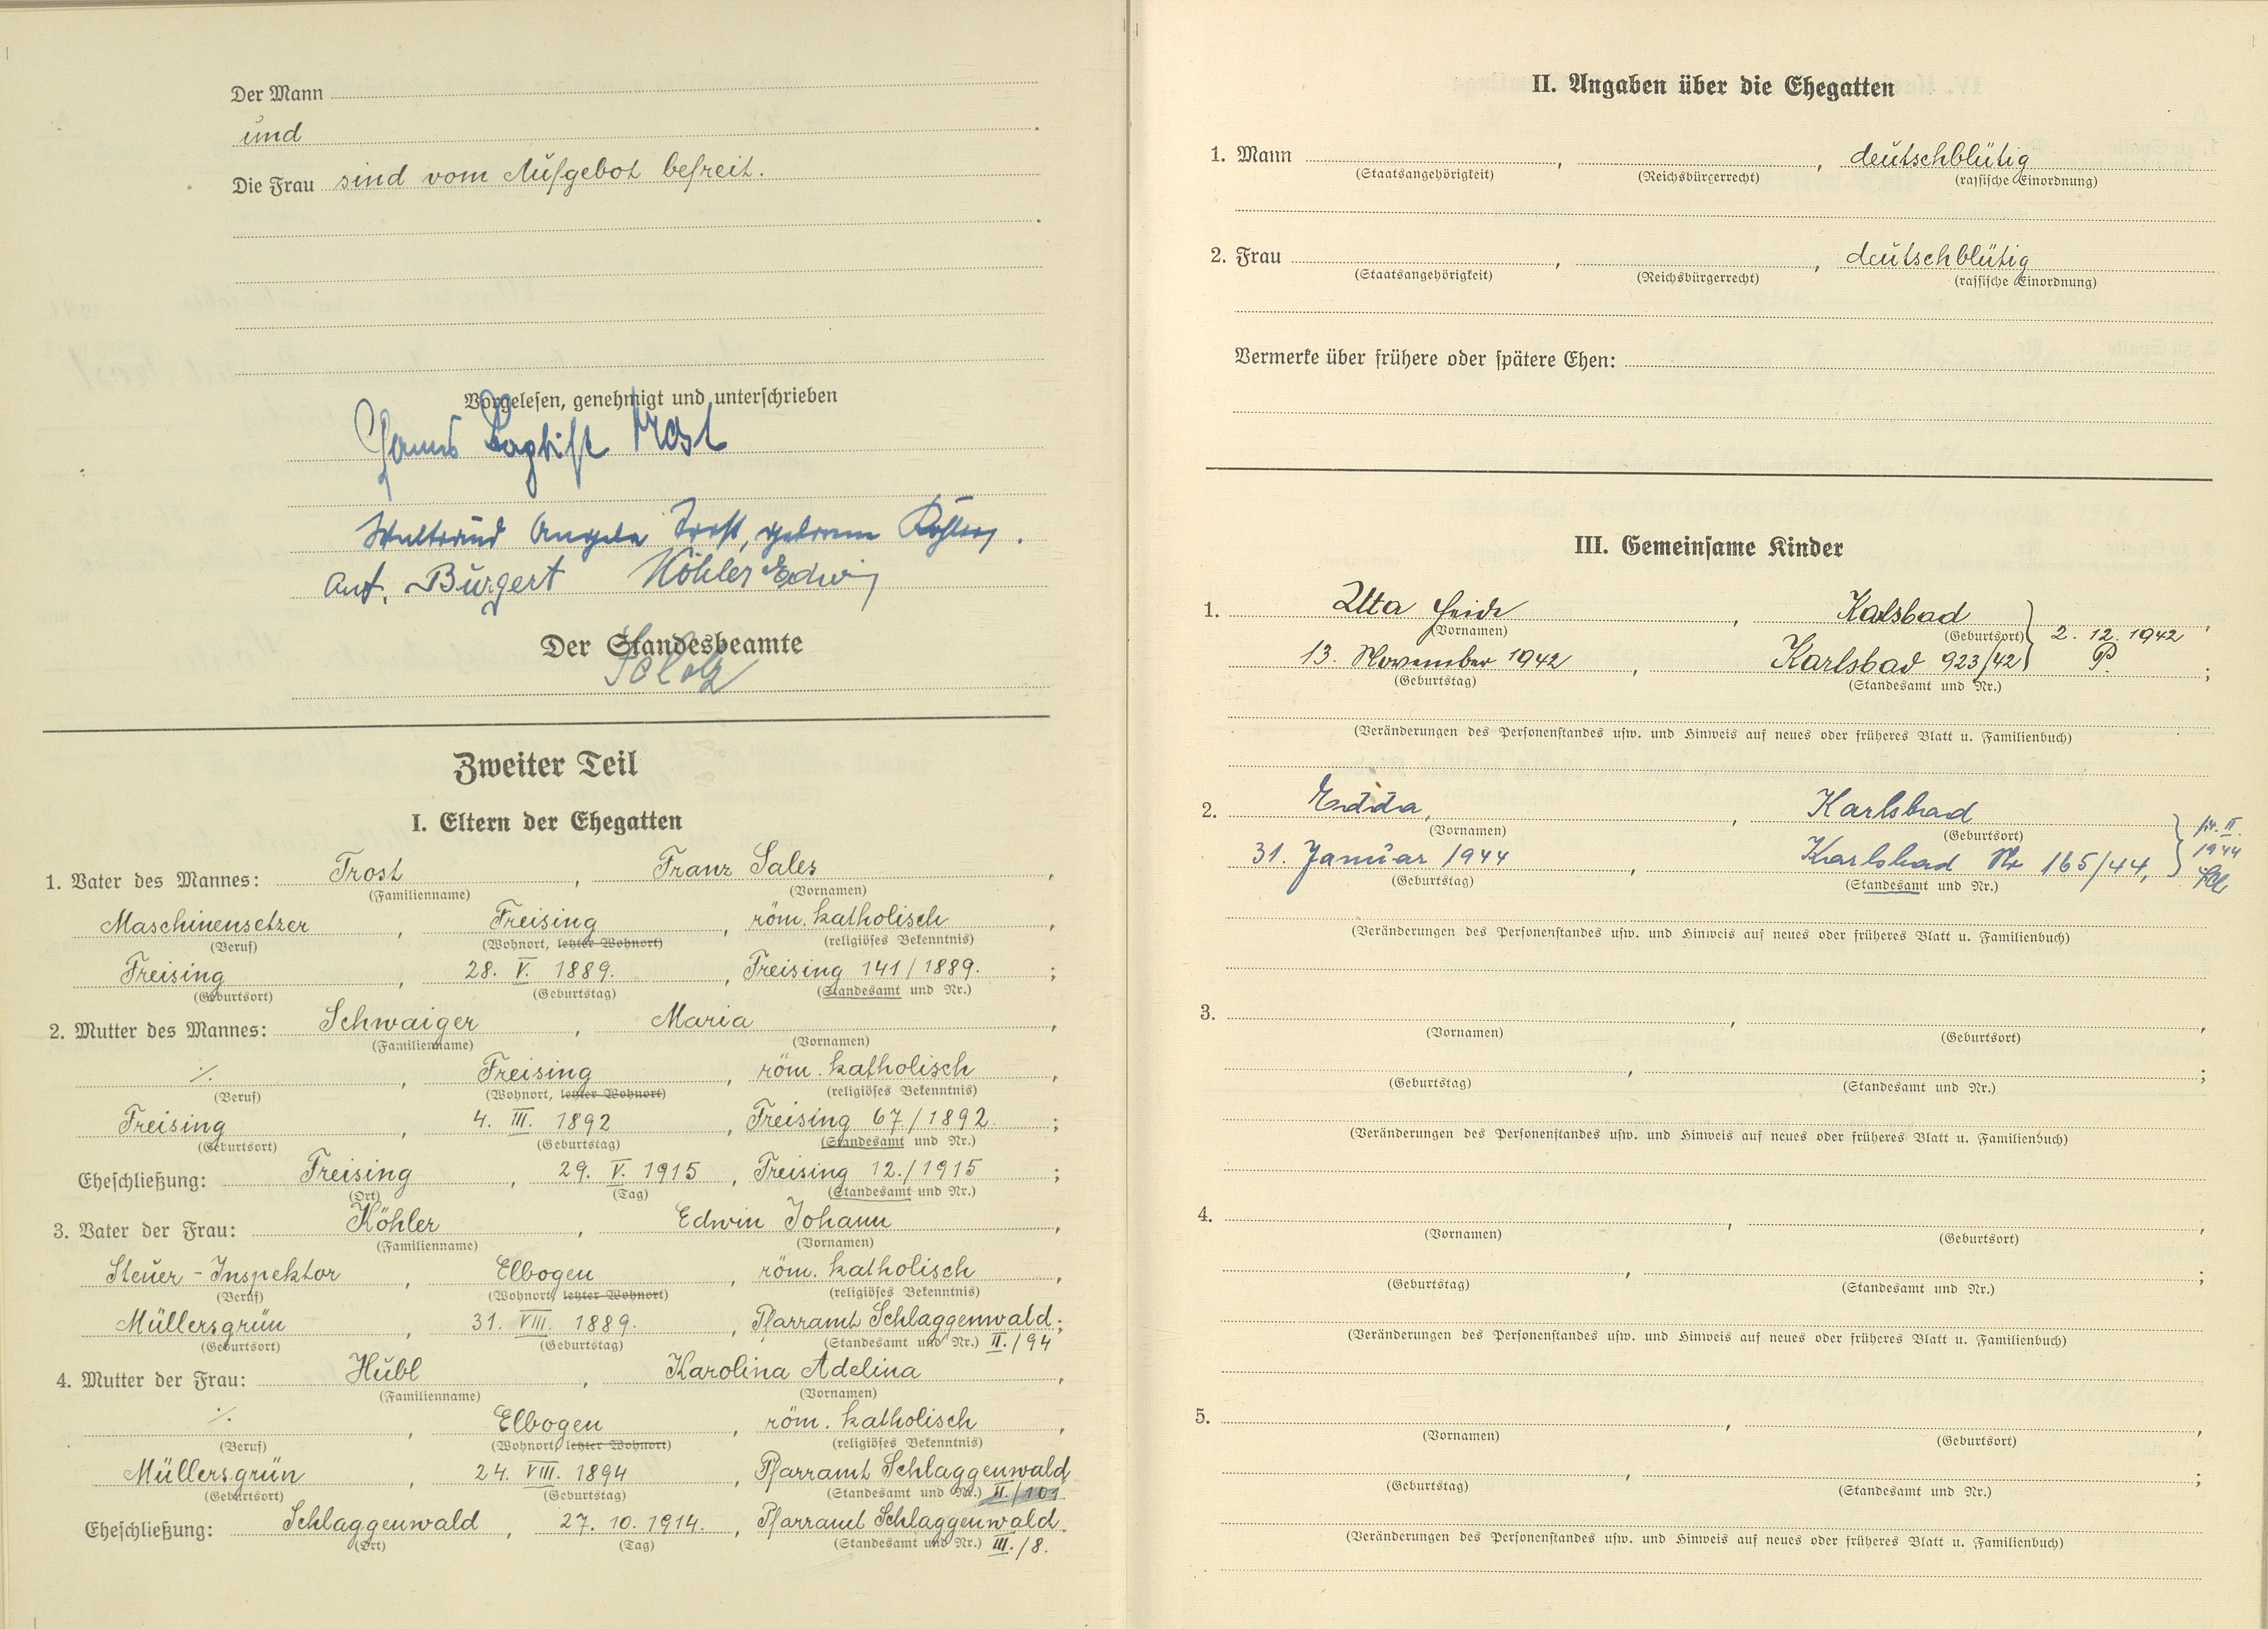 Der Mann
und
Die Frau sind vom Aufgebot befreit.
Vorgelesen, genehmigt und unterschrieben
Hans Trost
Waltraud Angela Trost, geborene Köhler.
Ant. Burgert Köhler Edwin
Der Standesbeamte
Zweiter Teil
I. Eltern der Ehegatten
1. Vater des Mannes: Trost, Franz Sales,
(Familienname) (Vornamen)
Maschinensetzer, Freising, röm. katholisch,
(Beruf) (Wohnort, letzter Wohnort) (religiöses Bekenntnis)
Freising, 28. V. 1889., Freising 141/1889.;
(Geburtsort) (Geburtstag) (Standesamt und Nr.)
2. Mutter des Mannes: Schwaiger, Maria,
(Familienname) (Vornamen)
·/., Freising, röm. katholisch,
(Beruf) (Wohnort, letzter Wohnort) (religiöses Bekenntnis)
Freising, 4. III. 1892, Freising 67/1892.;
(Geburtsort) (Geburtstag) (Standesamt und Nr.)
Eheschließung: Freising, 29. V. 1915, Freising 12./1915;
(Ort) (Tag) (Standesamt und Nr.)
3. Vater der Frau: Köhler, Edwin Johann,
(Familienname) (Vornamen)
Steuer-Inspektor, Elbogen, röm. katholisch,
(Beruf) (Wohnort, letzter Wohnort) (religiöses Bekenntnis)
Müllersgrün, 31. VIII. 1889., Pfarramt Schlaggenwald;
(Geburtsort) (Geburtstag) (Standesamt und Nr.) II./94
4. Mutter der Frau: Hübl, Karolina Adelina,
(Familienname) (Vornamen)
·/., Elbogen, röm. katholisch,
(Beruf) (Wohnort, letzter Wohnort) (religiöses Bekenntnis)
Müllersgrün, 24. VIII. 1894, Pfarramt Schlaggenwald
(Geburtsort) (Geburtstag) (Standesamt und Nr.) II./101
Eheschließung: Schlaggenwald, 27. 10. 1914., Pfarramt Schlaggenwald.
(Ort) (Tag) (Standesamt und Nr.) III./8.
II. Angaben über die Ehegatten
1. Mann , , deutschblütig
(Staatsangehörigkeit) (Reichsbürgerrecht) (rassische Einordnung)
2. Frau , , deutschblütig
(Staatsangehörigkeit) (Reichsbürgerrecht) (rassische Einordnung)
Vermerke über frühere oder spätere Ehen:
III. Gemeinsame Kinder
1. Utta Heide, Kalsbad
(Vornamen) (Geburtsort) 2. 12. 1942,
13. November 1942, Karlsbad 923/42 P.;
(Geburtstag) (Standesamt und Nr.)
(Veränderungen des Personenstandes usw. und Hinweis auf neues oder früheres Blatt u. Familienbuch)
2. Edda, Karlsbad
(Vornamen) (Geburtsort)
31. Januar 1944, Karlsbad Nr 165/44, 1944
(Geburtstag) (Standesamt und Nr.)
(Veränderungen des Personenstandes usw. und Hinweis auf neues oder früheres Blatt u. Familienbuch)
3. , ,
(Vornamen) (Geburtsort)
, ;
(Geburtstag) (Standesamt und Nr.)
(Veränderungen des Personenstandes usw. und Hinweis auf neues oder früheres Blatt u. Familienbuch)
4. , ,
(Vornamen) (Geburtsort)
, ;
(Geburtstag) (Standesamt und Nr.)
(Veränderungen des Personenstandes usw. und Hinweis auf neues oder früheres Blatt u. Familienbuch)
5. , ,
(Vornamen) (Geburtsort)
, ;
(Geburtstag) (Standesamt und Nr.)
(Veränderungen des Personenstandes usw. und Hinweis auf neues oder früheres Blatt u. Familienbuch)